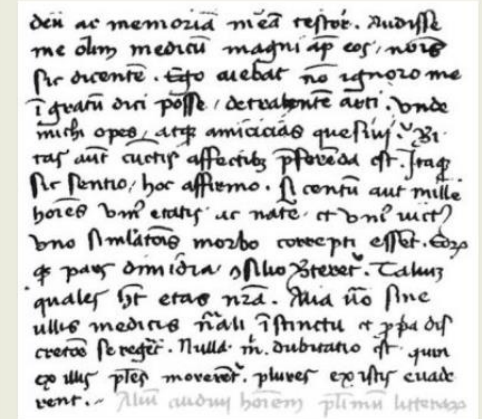 deū ac memoriā meā testor. Audisse
me olim medicū magni ap̄ eos, nois
sic dicentē. Ego aiebat nō ignoro me
īgratū dici posse, detrahentē arti. Unde
michi opes, atq̨ amicicias quesiui. Ỽi
tas aūt cūctis affectibꝫ p̄ferēda est. Itaq̨
sic sentio, hoc affirmo. Si centū aut mille
hoīes uniꝰ etatis ac nate. et uniꝰ uictꝰ
uno simłatoīs morbo correpti essēt. Eoꝝ
q̨ pars dimidia, ꝯsilio uteret᷑. Taliū
quales hꝫ etas nr̄a. Alia ūo sine
ullis medicis nāli īstinctu et ꝓp̄a dis
cretōe se regēt. Nulla m̄ dubitatio est quin
ex illis p̄tes morerēt᷑. plures ex istis euade
rent. Aliū audiui hoīem p̄timū litteraꝝ